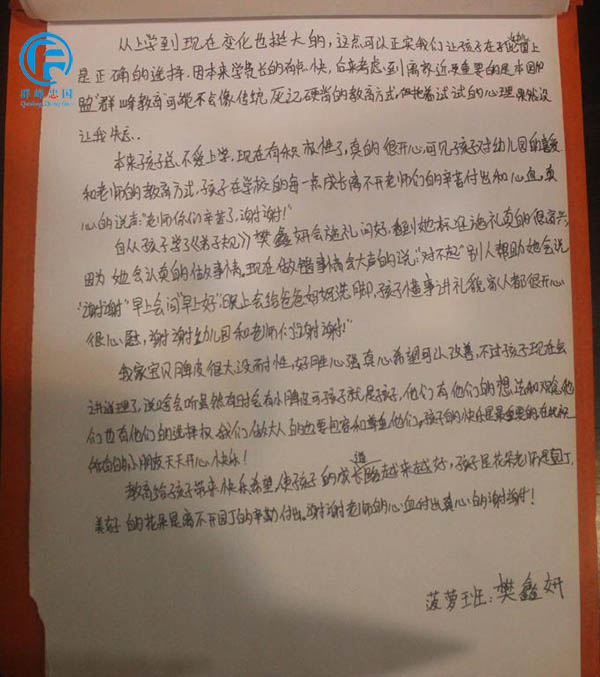 群峰忠国
从上学到现在变化也挺大的,这点可以正实我们让孩子在子论留上
是正确的选择.因本来学费长的有点快,后来考虑到离家近更重要的是本园加
盟"群峰教育"可能不点像传坑,死记硬背的教育方式,但抱着试试的心理果然没
让我失忘..
本来孩子总不爱上学,现在有积极性了,真的很开心,可见孩子对幼儿园的喜爱
和老师的教育方式,孩子在学校的每一点成长离不开老师们的辛苦付出和心血,真
心的说声:"老师你们辛苦了,谢谢!"
自从孩子学了《弟子规》樊鑫妍会施礼问好,看到她标准施礼真的很高兴,
因为她会认真的做故事情。现在做错事情会大声的说:"对不起"别人帮助她会说
"谢谢"早上会问"早上好"晚上会给爸爸妈妈洗脚,孩子懂事讲礼貌,家人都很开心
很心慰,谢谢幼儿园和老师们"谢谢!"
我家宝贝脾皮很大,没耐性,好胜心强,真心希望可以改善,不过孩子现在会
讲道理了,说啥会听虽然有时会有小脾皮可孩子就是孩子,他们有他们的想法和观念他
们也有他们的选择权,我们做大人的也要包容和尊重他们。孩子的快乐是最重要的在此祝
所有的小朋友天天开心快乐!
教育给孩子带来快乐希望,使孩子的成长道路越来越好,孩子是花朵老师是园丁,
美好的花朵是离不开园丁的辛勤付出。谢谢老师的心血付出真心的谢谢!
菠萝班:樊鑫妍